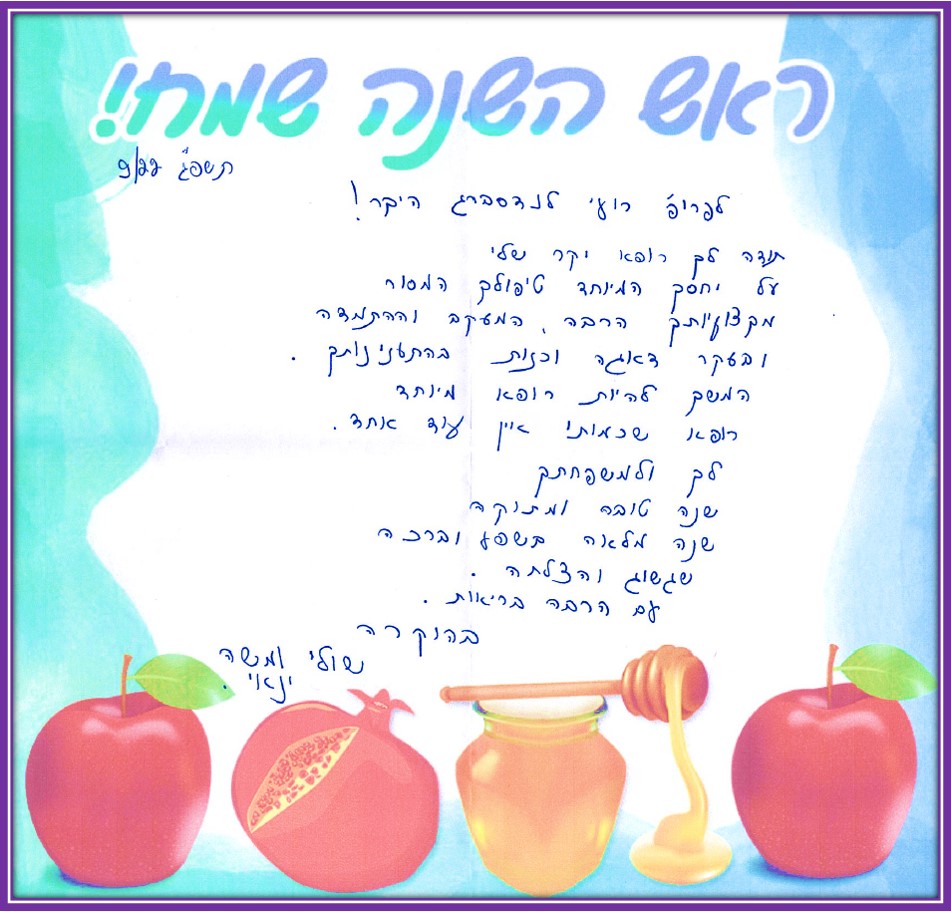 ראש השנה שמח!
תשפ"ג 9/22
לפרופ' רועי לנדסברג היקר!
תודה לך רופא יקר שלי
על יחסך המיוחד טיפולך המסור
מקצועיותך הרבה, המעקב וההתמדה
ובעקר דאגה וכנות בהתענינותך.
המשך להיות רופא מיוחד
רופא שכמותו אין עוד אחד.
לך ולמשפחתך
שנה טובה ומתוקה
שנה מלאה בשפע וברכה
שגשוג והצלחה.
עם הרבה בריאות.
בהוקרה
שולי ומשה
ינאי